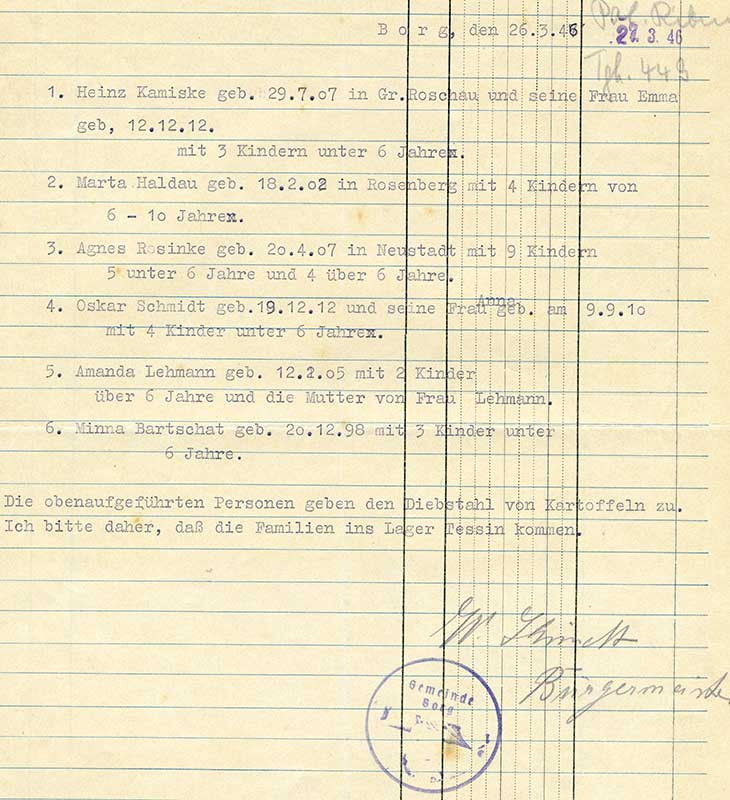 Borg, den 26.3.46
27. 3. 46
Tgb. 443
1. Heinz Kamiske geb. 29.7.07 in Gr.Roschau und seine Frau Emma
geb, 12.12.12.
mit 3 Kindern unter 6 Jahren.
2. Marta Haldau geb. 18.2.02 in Rosenberg mit 4 Kindern von
6 - 10 Jahren.
3. Agnes Rosinke geb. 20.4.07 in Neustadt mit 9 Kindern
5 unter 6 Jahre und 4 über 6 Jahre.
Anna
4. Oskar Schmidt geb.19.12.12 und seine Frau geb. am 9.9.10
mit 4 Kinder unter 6 Jahren.
5. Amanda Lehmann geb. 12.2.05 mit 2 Kinder
über 6 Jahre und die Mutter von Frau Lehmann.
6. Minna Bartschat geb. 20.12.98 mit 3 Kinder unter
6 Jahre.
Die obenaufgeführten Personen geben den Diebstahl von Kartoffeln zu.
Ich bitte daher, daß die Familien ins Lager Tessin kommen.
W.
Bürgermeister
Gemeinde
Borg